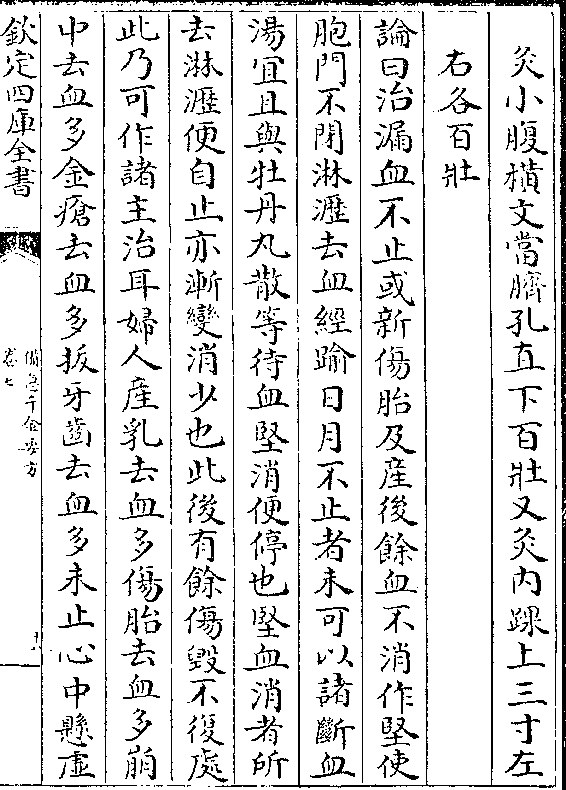 灸小腹横文當臍孔直下百壯又灸内踝上三寸左
右各百壯
論曰治漏血不止或新傷胎及産後餘血不消作堅使
胞門不閉淋瀝去血經踰日月不止者未可以諸斷血
湯宜且與牡丹丸散等待血堅消便停也堅血消者所
去淋瀝便自止亦漸變消少也此後有餘傷毀不復處
此乃可作諸主治耳婦人産乳去血多傷胎去血多崩
中去血多金瘡去血多拔牙齒去血多未止心中懸虛
欽定四庫全書
備急千金要方
卷七